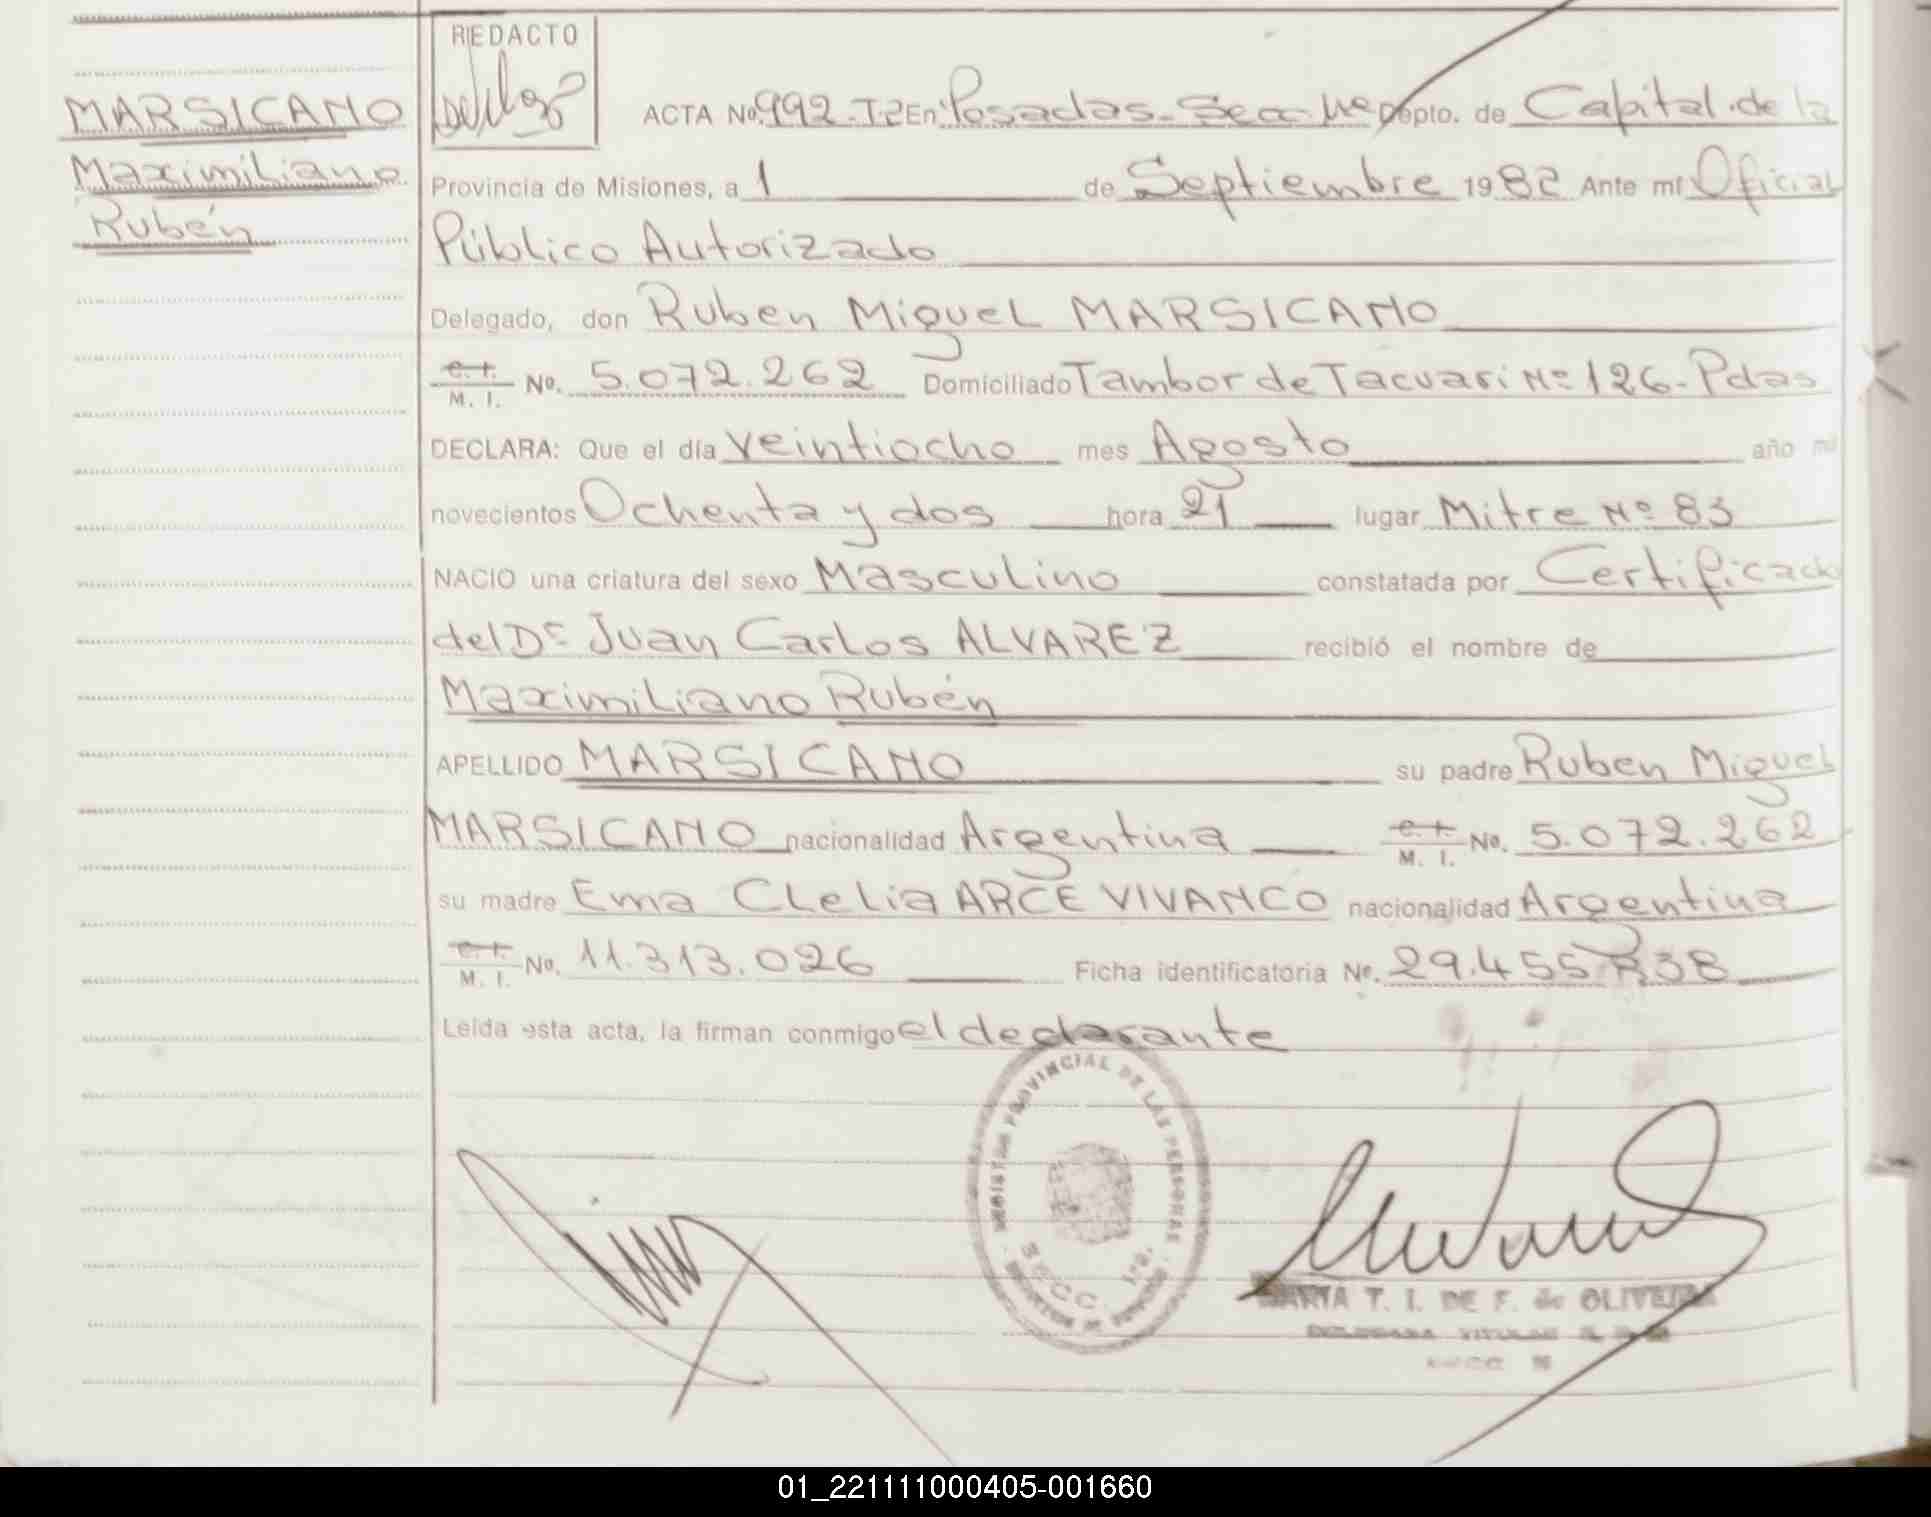 REDACTO
MARSICANO
Maximiliano
Rubén
ACTA No. 992-T-2 En Posadas-Secc-1ra Depto. de Capital de la
Provincia de Misiones, a 1 de Septiembre 1982 Ante mí Oficial
Público Autorizado
Delegado, don Ruben Miguel MARSICANO
C. I. M. I. No. 5.072.262 Domiciliado Tambor de Tacuari Nº 126-Pdas
DECLARA: Que el día veintiocho mes Agosto año mil
novecientos Ochenta y dos hora 21 lugar Mitre Nº 83
NACIO una criatura del sexo Masculino constatada por Certificado
del Dr Juan Carlos ALVAREZ recibió el nombre de
Maximiliano Rubén
APELLIDO MARSICANO su padre Ruben Miguel
MARSICANO nacionalidad Argentina C. I. M. I. No. 5.072.262
su madre Ema Clelia ARCE VIVANCO nacionalidad Argentina
C. I. M. I. No. 11.313.026 Ficha identificatoria No. 29.455.838
Leída esta acta, la firman conmigo el declarante
REGISTRO PROVINCIAL DE LAS PERSONAS
SECC. 1ra.
MARIA T. I. DE F. de OLIVEIRA
DELEGADA TITULAR
01_221111000405-001660